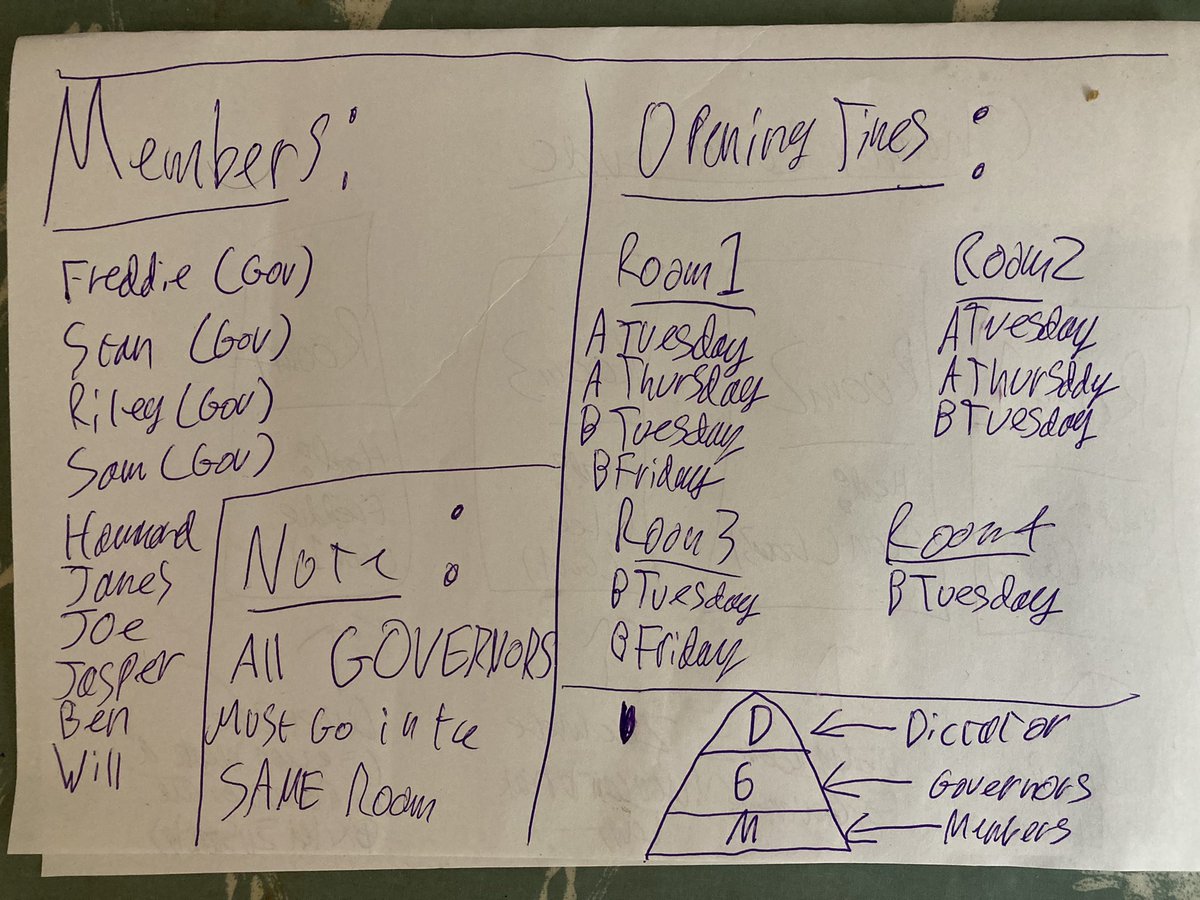 Members:
Freddie (Gov)
Stan (Gov)
Riley (Gov)
Sam (Gov)
James
Joe
Jasper
Ben
Will
Note:
All GOVERNORS
Must Go in the
SAME Room
Opening Times:
Room 1
A Tuesday
A Thursday
B Tuesday
B Friday
Room 2
A Tuesday
A Thursday
B Tuesday
Room 3
B Tuesday
B Friday
Room 4
B Tuesday
D
Dictator
G
Governors
M
Members